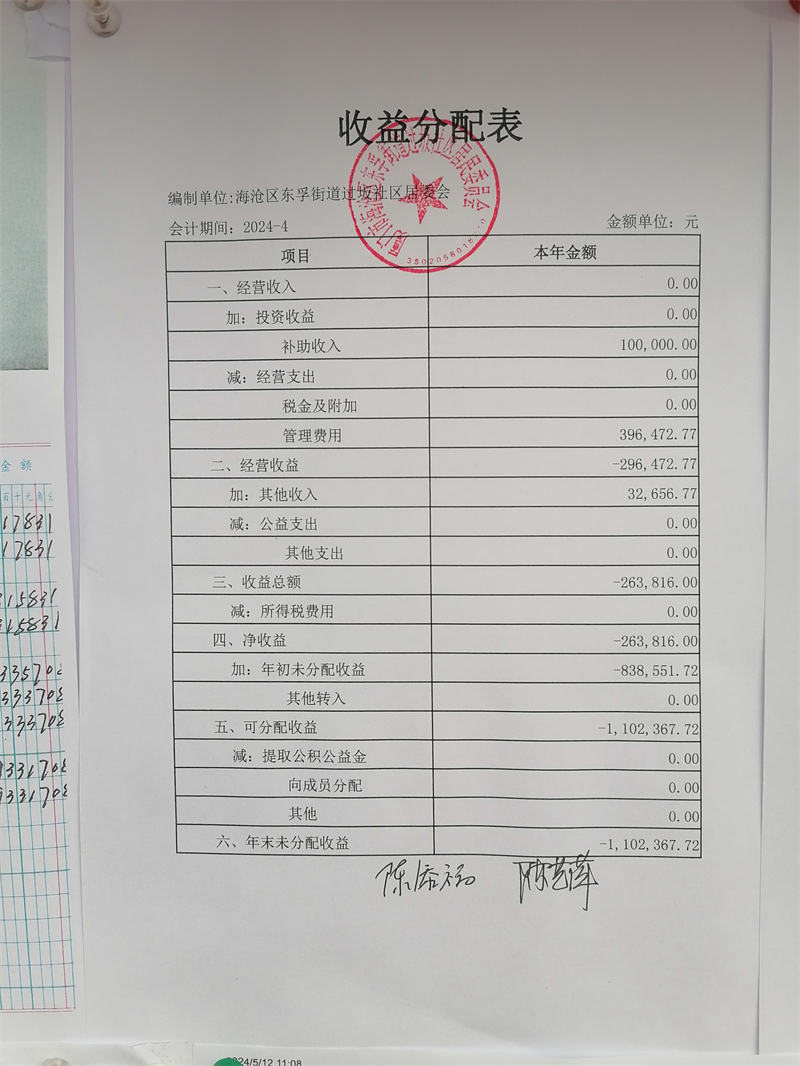 收益分配表
编制单位:海沧区东孚街道过坂社区居委会
会计期间: 2024-4
金额单位: 元
项目 本年金额
一、经营收入 0.00
加: 投资收益 0.00
补助收入 100,000.00
减: 经营支出 0.00
税金及附加 0.00
管理费用 396,472.77
二、经营收益 -296,472.77
加: 其他收入 32,656.77
减: 公益支出 0.00
其他支出 0.00
三、收益总额 -263,816.00
减: 所得税费用 0.00
四、净收益 -263,816.00
加: 年初未分配收益 -838,551.72
其他转入 0.00
五、可分配收益 -1,102,367.72
减: 提取公积公益金 0.00
向成员分配 0.00
其他 0.00
六、年末未分配收益 -1,102,367.72
金 额
百十元角
17831
17831
315831
315831
33570
333703
333703
933170
933170
24/5/12 11:08